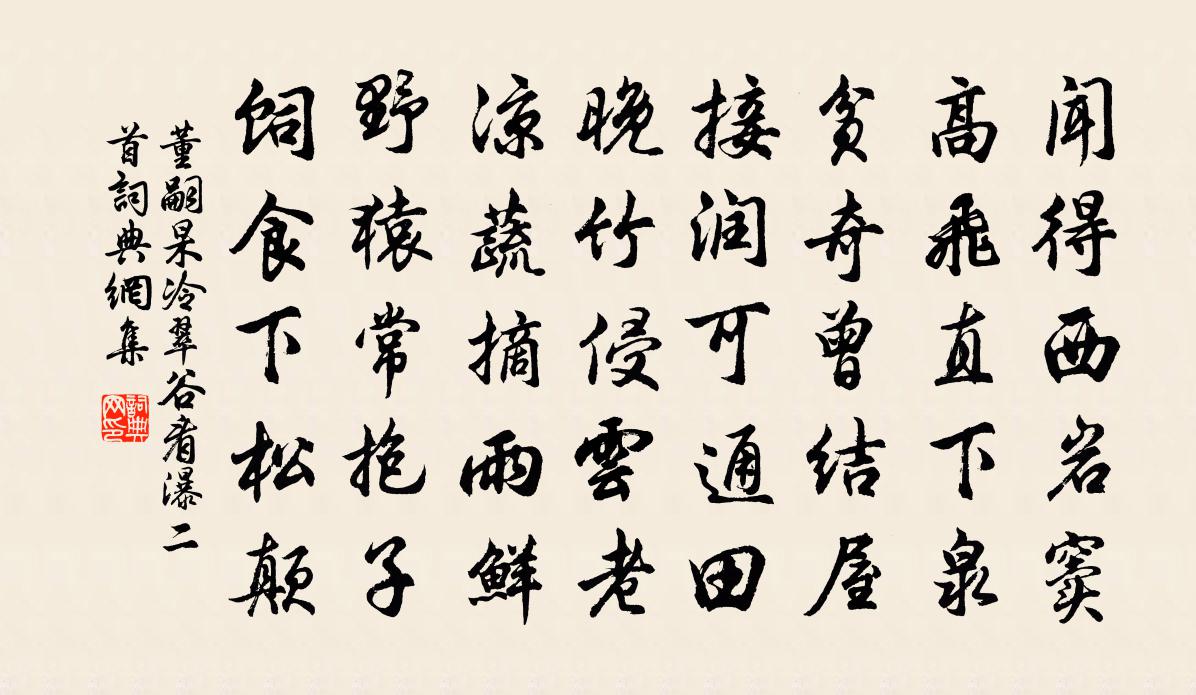 闻得西岩窦
高飛直下泉
贫奇曾结屋
接润可通田
晚竹侵雲老
涼蔬摘雨鮮
野猿常抱子
饲食下松颠
董嗣杲冷翠谷看瀑二
首詞典網集
詞典
网印